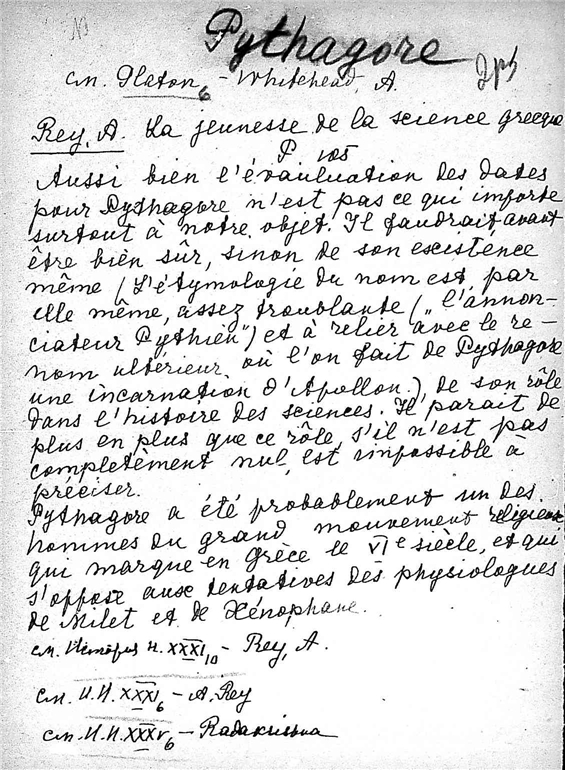 Pythagore
см. Платон 6 – Whitehead, A.
Rey, A. La jeunesse de la science grecque
P 105
Aussi bien l'évauluation des dates
pour Pythagore n'est pas ce qui importe
surtout à notre objet. Il faudrait, avant
être bien sûr, sinon de son escistence
même (L'étymologie du nom est, par
elle même, assez troublante („l'annon-
ciateur Pythien") et à relier avec le re-
nom ultérieur, où l'on fait de Pythagore
une incarnation d'Apollon.) de son rôle
dans l'histoire des sciences. Il parait de
plus en plus que ce rôle, s'il n'est pas
completèment nul, est impossible à
préciser.
Pythagore a été probablement un des
hommes du grand mouvement religieux
qui marque en Grèce le VIe siècle, et qui
s'oppose aux tentatives des physiologues
de Milet et de Xénophane.
см. История Н. XXXI 10 – Rey, A.
см. И.Н. XXXI 6 – A. Rey
см. И.Н. XXXV 6 – Radakrishna